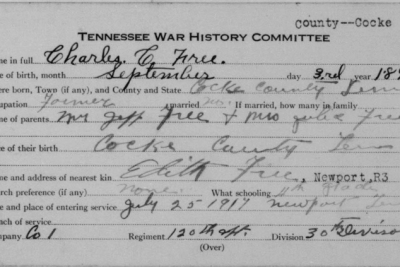 county--Cocke
TENNESSEE WAR HISTORY COMMITTEE
ne in full Charles C. Free.
e of birth, month September day 3rd year 189
ere born, Town (if any), and County and State Cocke County Tenn
upation Farmer married no. If married, how many in family
e of parents Mr Jeff Free & Mrs Julia Free
e of their birth Cocke County Tenn
ne and address of nearest kin Edith Free, Newport, R3
rch preference (if any) none. What schooling Grade
e and place of entering service July 25 1917 Newport Tenn
nch of service
pany Co I Regiment 120th Division 30th Division
(Over)